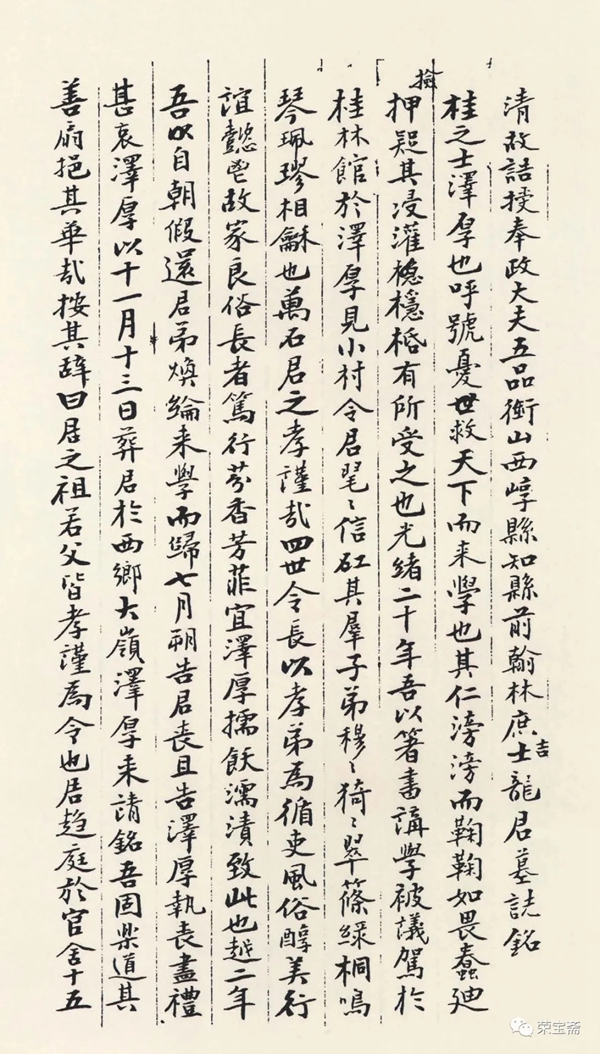 清故誥授奉政大夫五品銜山西崞縣知縣前翰林庶吉士龍君墓誌銘
桂之士澤厚也呼號憂世救天下而来學也其仁滂滂而鞠鞠如畏蠢迪
撿押疑其浸灌檼檼栝有所受之也光緒二十年吾以箸書講學被議駕於
桂林館於澤厚見小村令君毣〻信矼其羣子弟穆〻猗〻翠篠綠桐鳴
琴珮璆相龢也萬石君之孝謹㢤四世令長以孝弟為循吏風俗醇美行
誼懿鬯故家良俗長者篤行芬香芳菲宜澤厚擩飫濡漬致此也越二年
吾以自朝假還君弟煥綸来學而歸七月朔告君喪且告澤厚執喪盡禮
甚哀澤厚以十一月十三日葬君於西鄉大嶺澤厚来請銘吾固樂道其
善廟挹其華㢤按其辭曰君之祖若父皆孝謹為令也君趨庭於官舍十五
荣宝斋